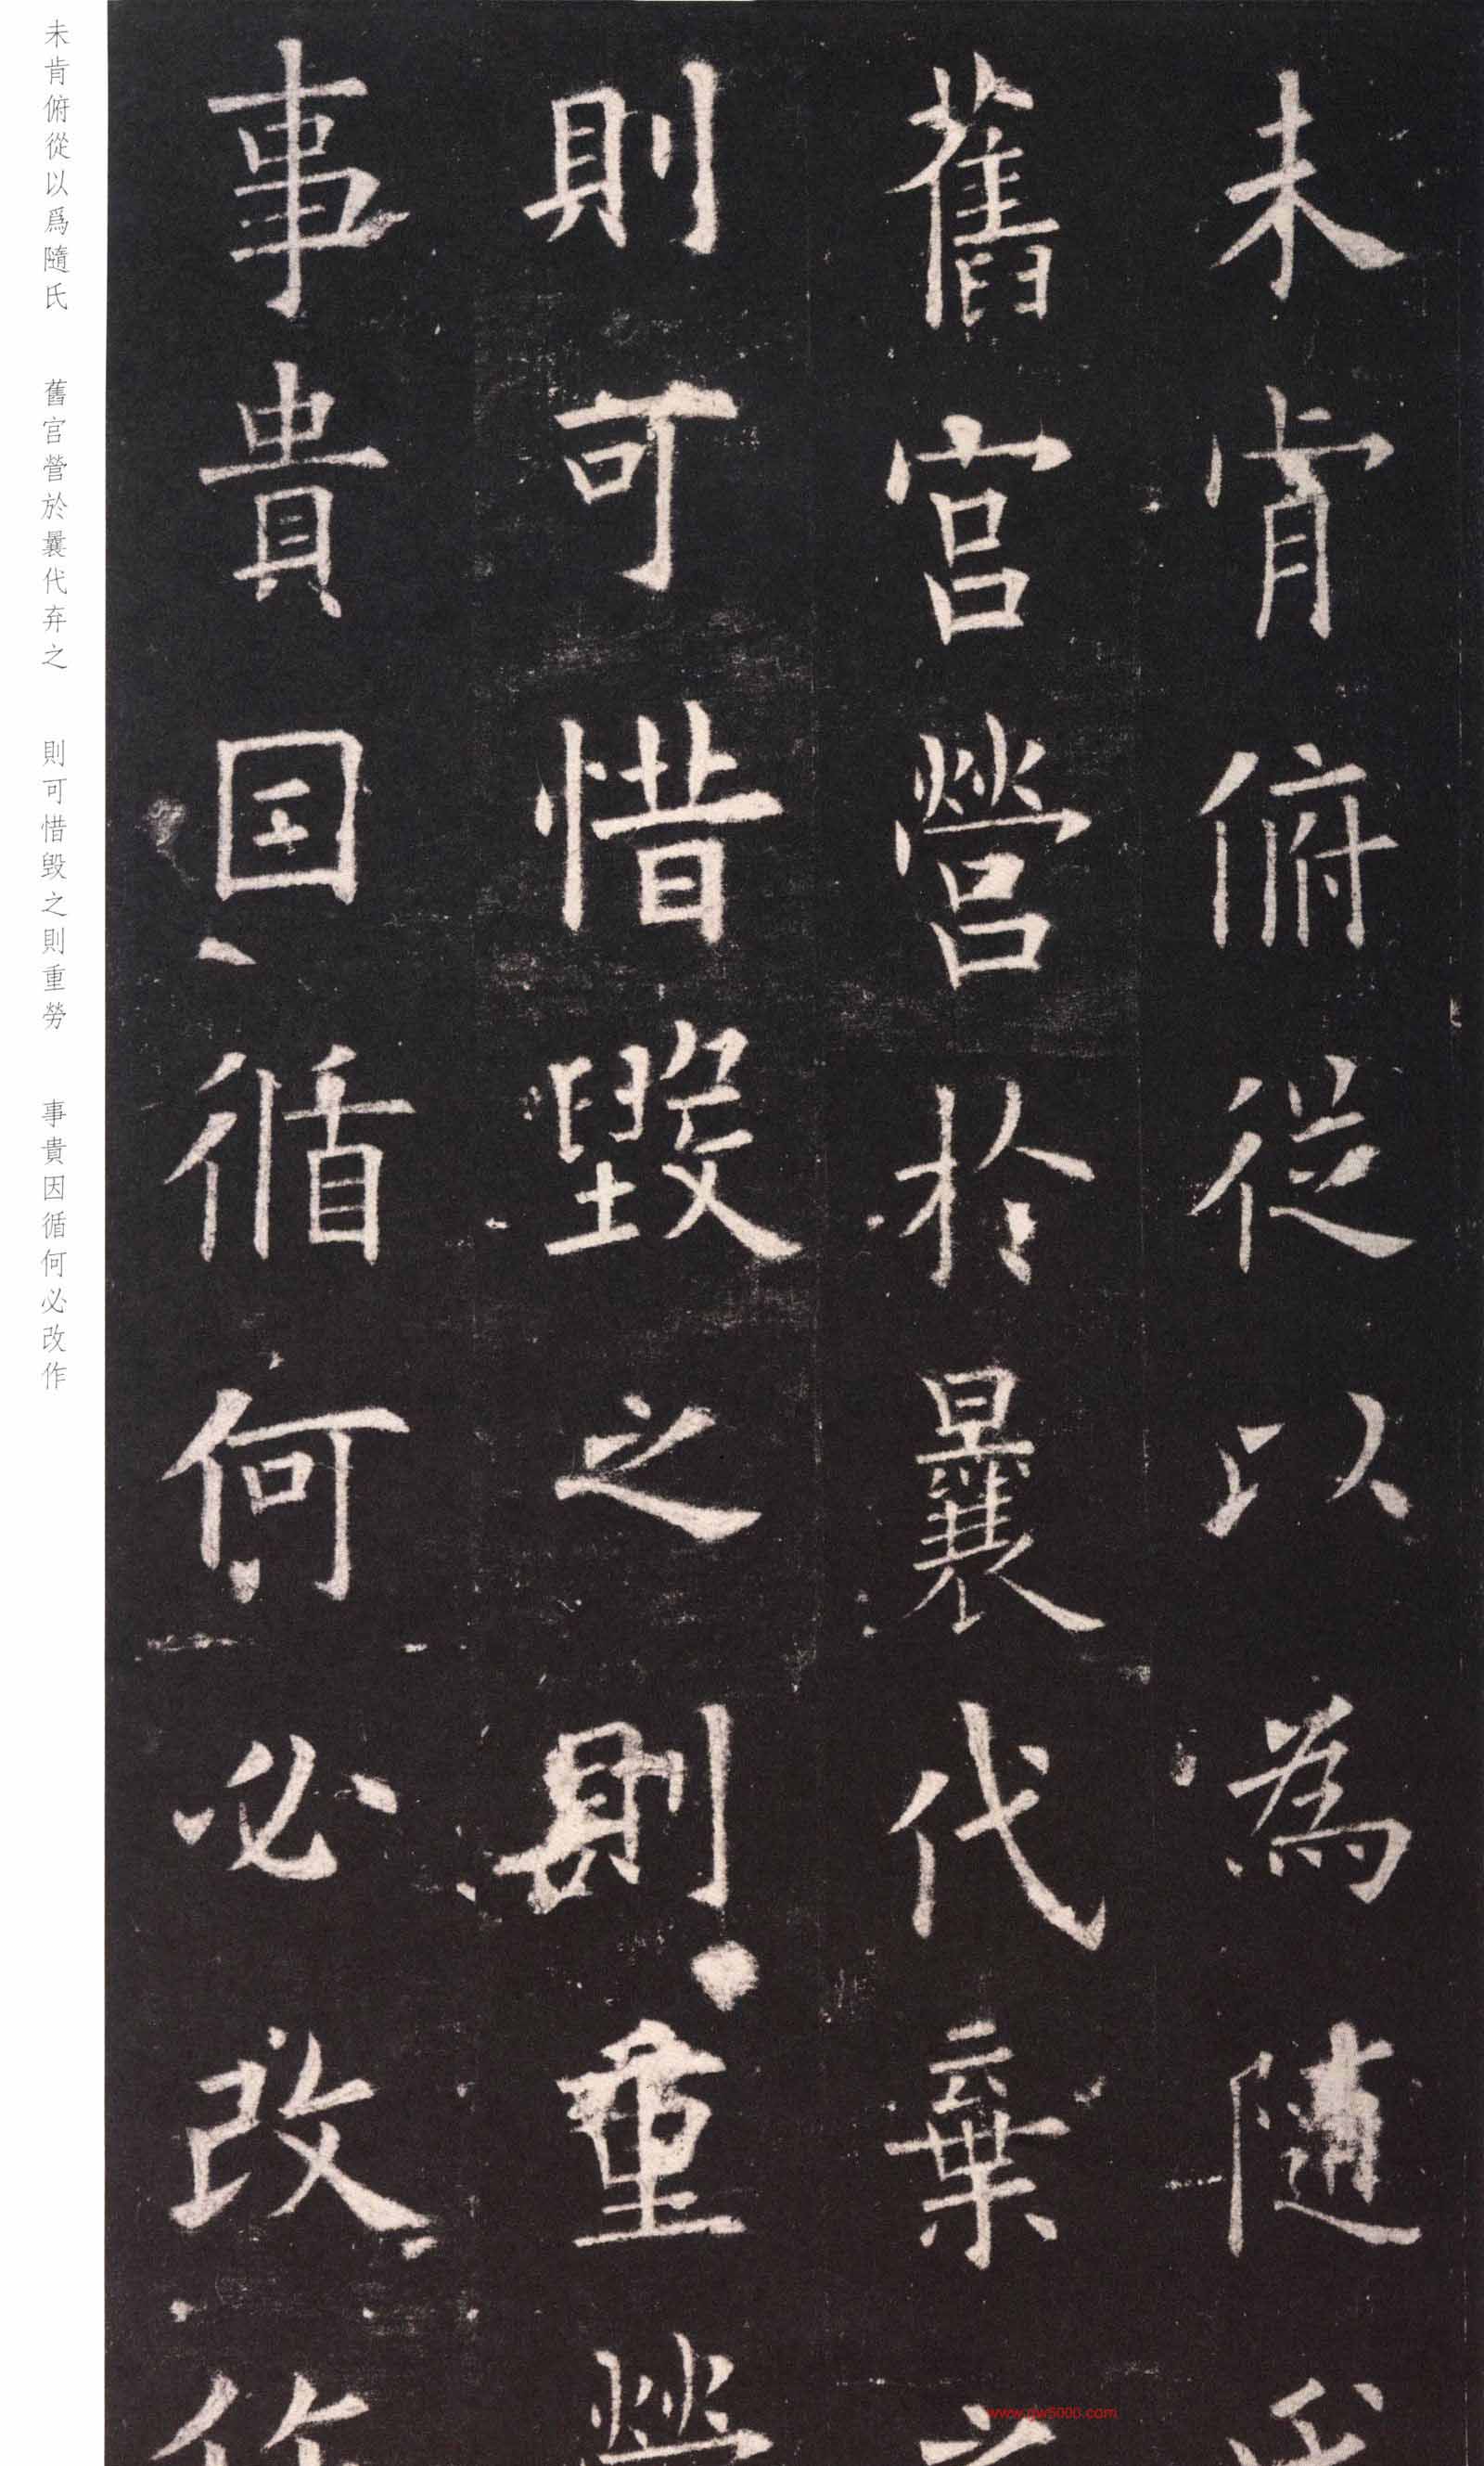 未肯俯從以為隨氏
舊宮營於曩代棄之
則可惜毀之則重勞
事貴因循何必改作
未肯俯從以爲隨氏 舊宮營於曩代弃之 則可惜毀之則重勞 事貴因循何必改作
www.gw5000.com